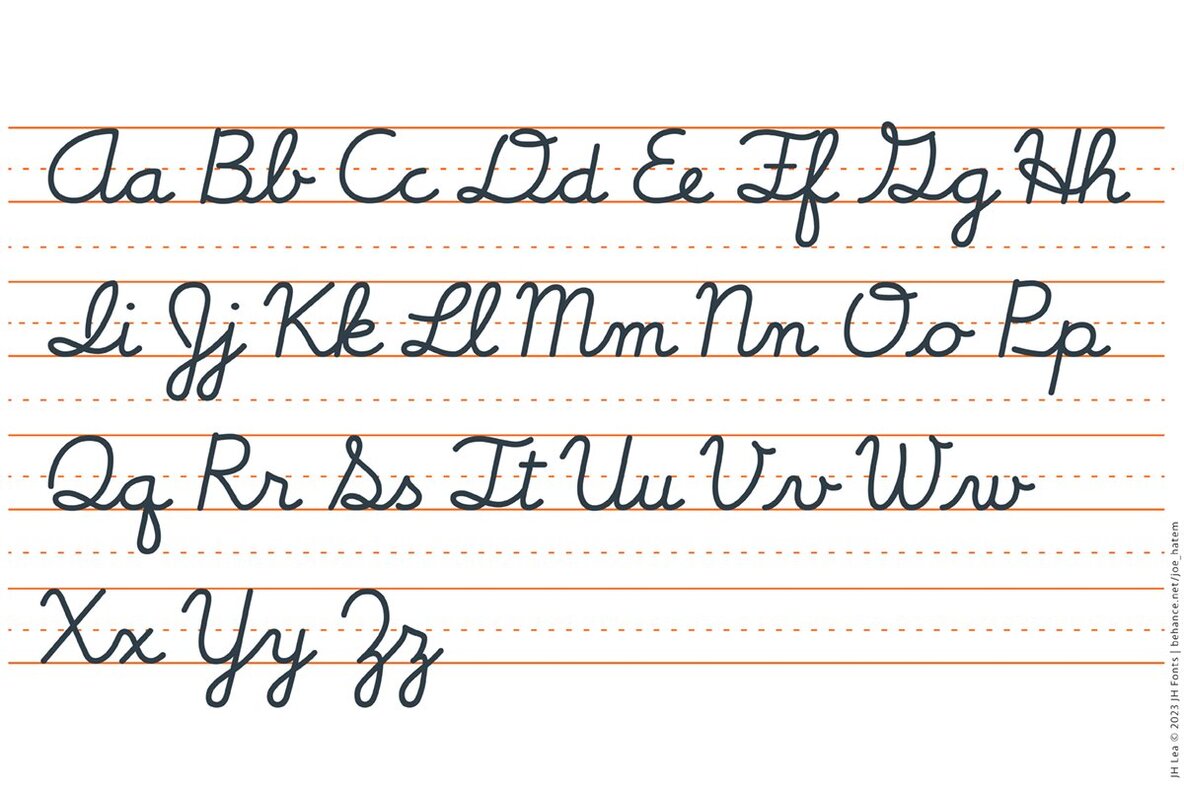 Aa Bb Cc Dd Ee Ff Gg Hh
Ii Jj Kk Ll Mm Nn Oo Pp
Qq Rr Ss Tt Uu Vv Ww
Xx Yy Zz
JH Lea © 2023 JH Fonts | behance.net/joe_hatem